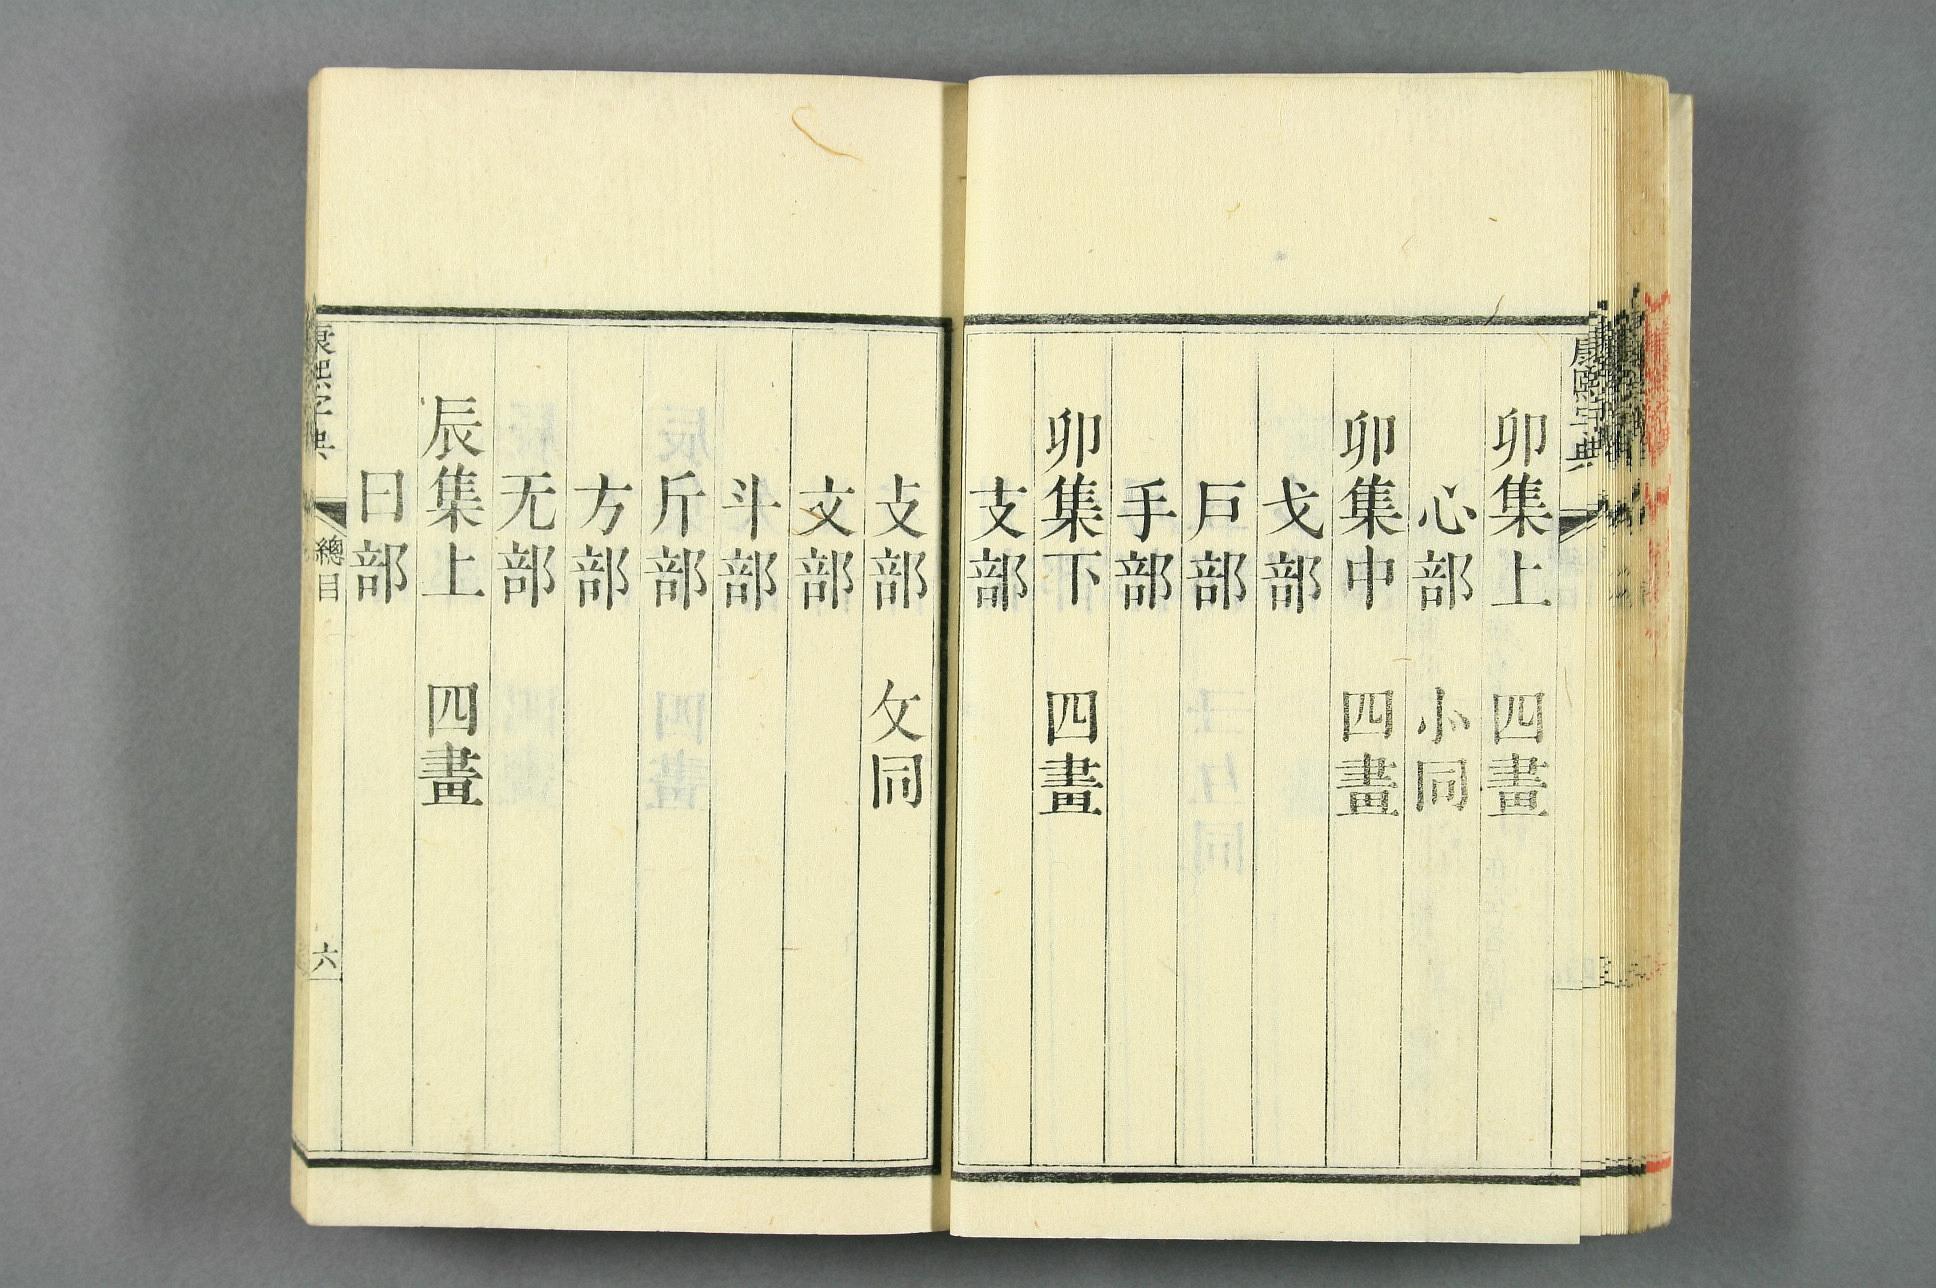 康熙字典
卯集上 四畫
心部 㣺同
卯集中 四畫
戈部
戶部
手部
卯集下 四畫
支部
攴部 攵同
文部
斗部
斤部
方部
无部
辰集上 四畫
日部
康熙字典 總目 六